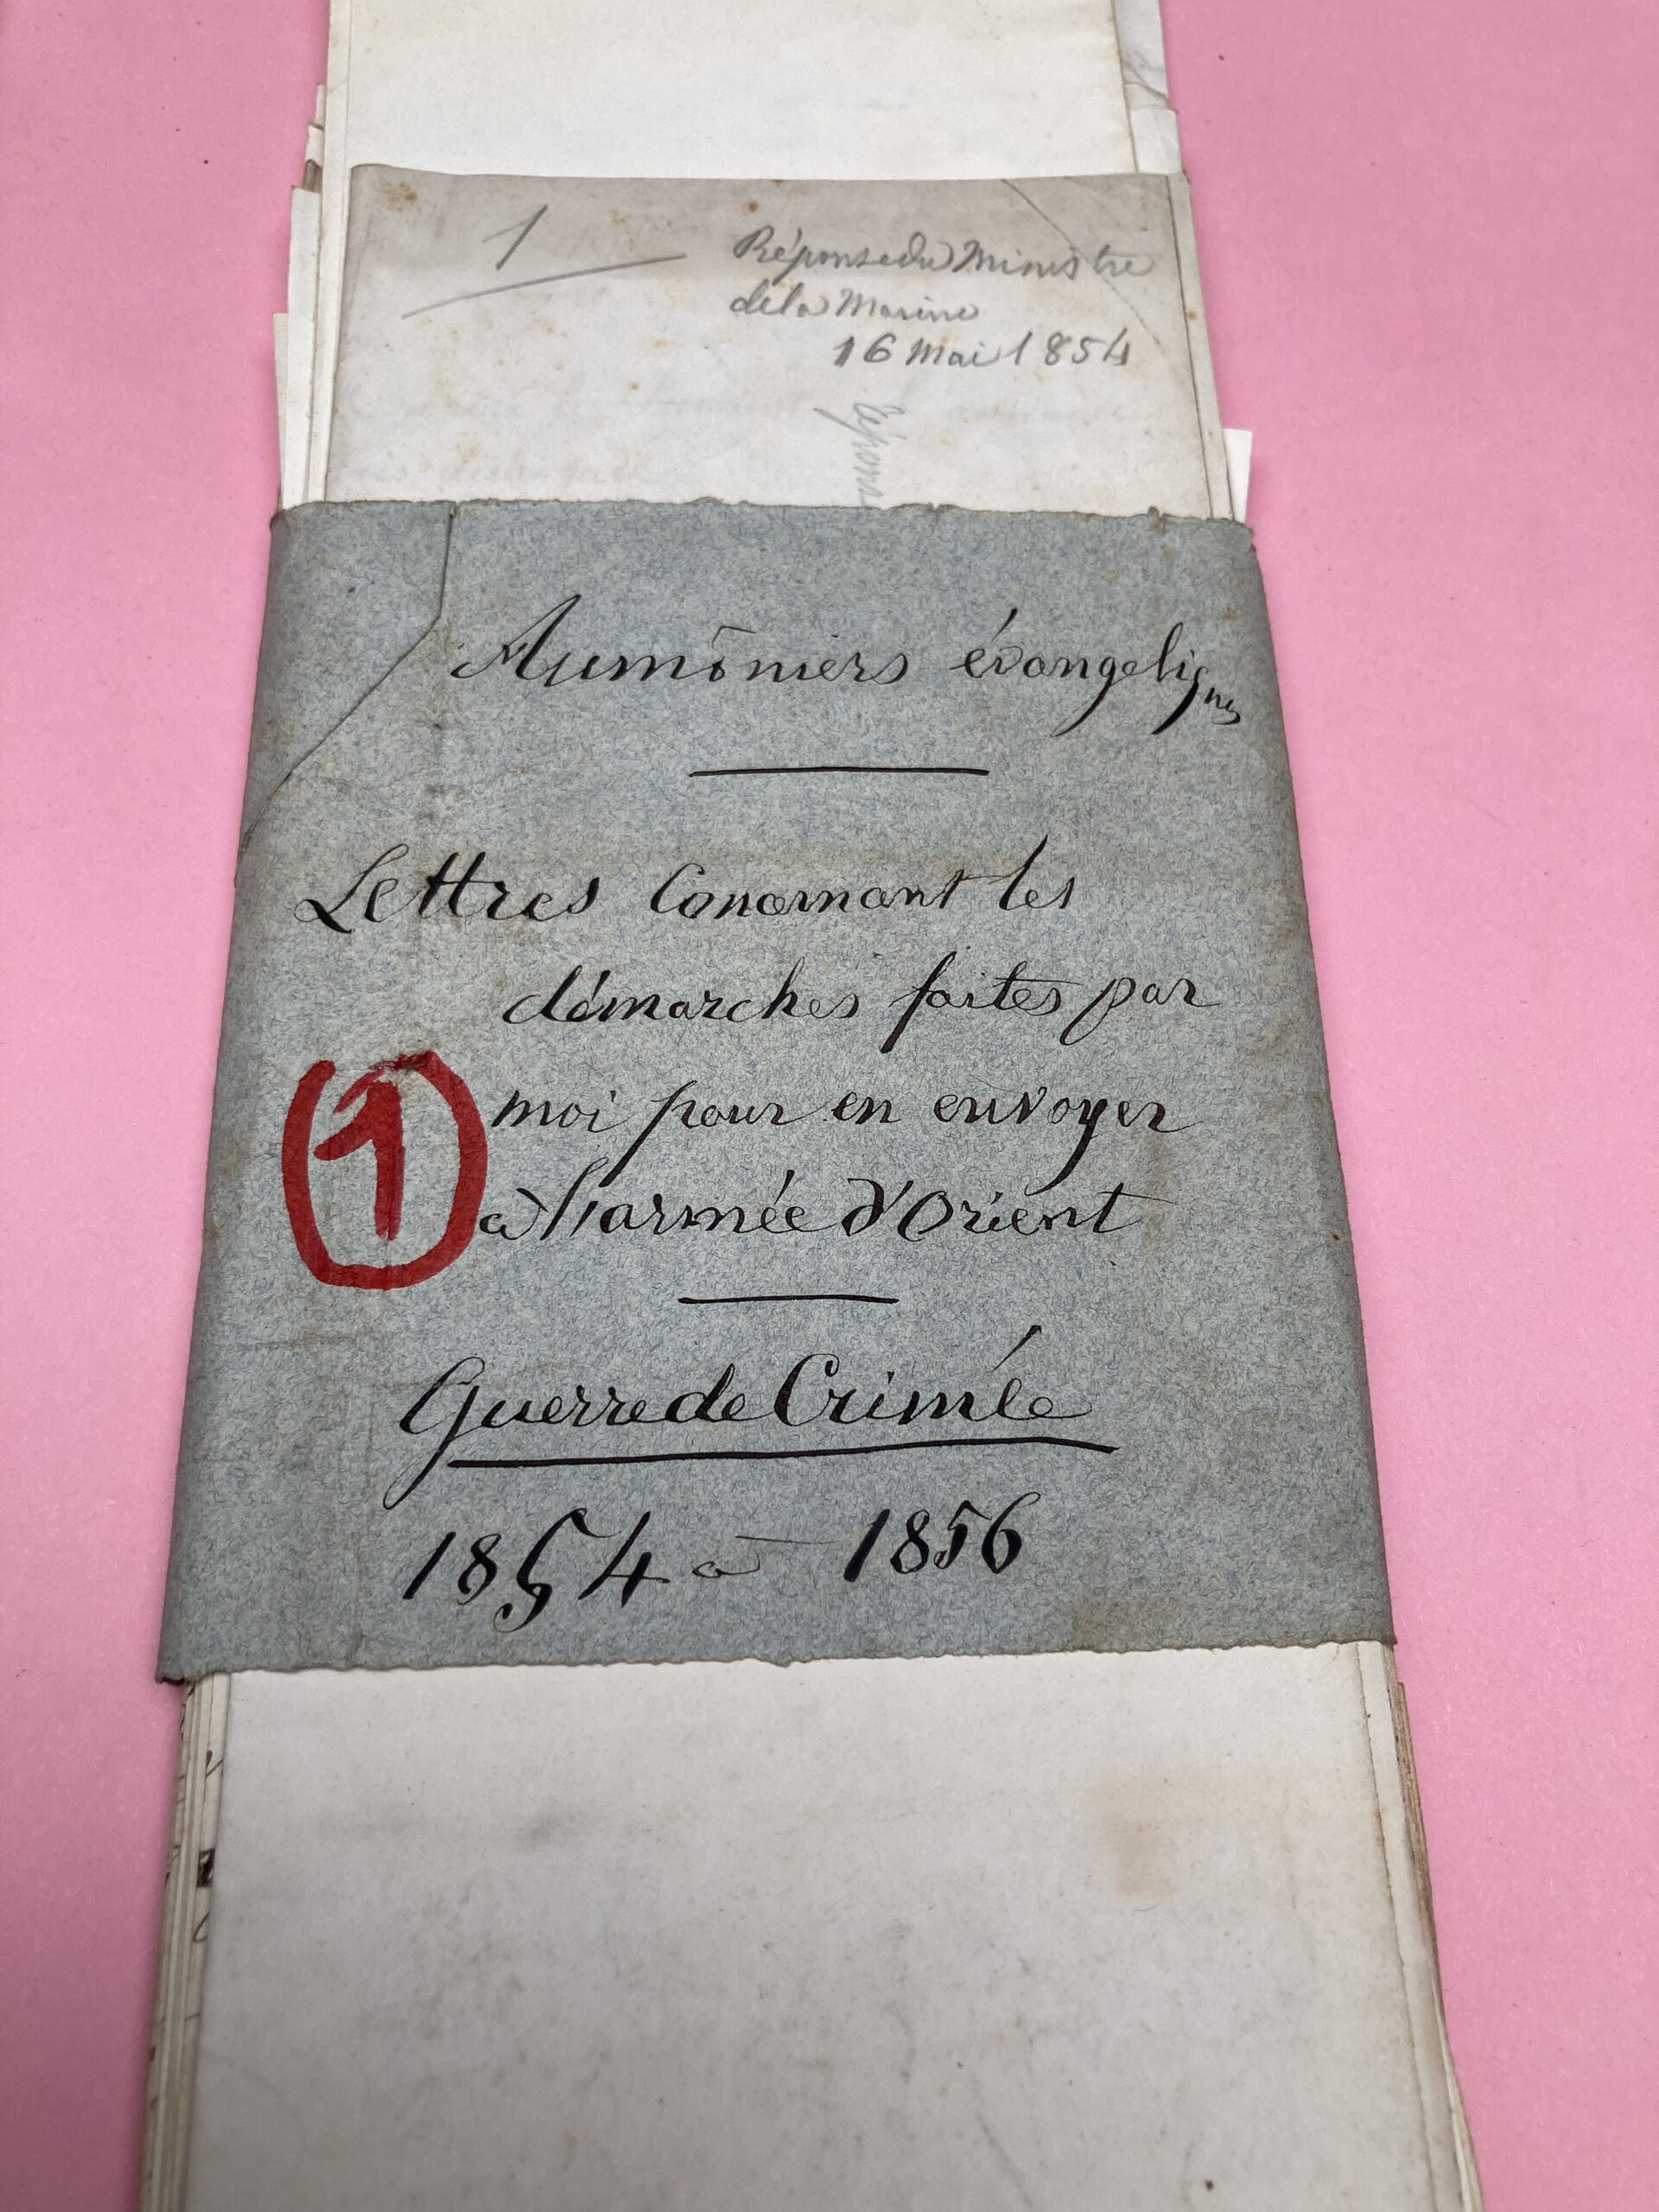 1
Réponse du Ministre
de la Marine
16 Mai 1854
Réponse
Aumôniers évangeliques
Lettres Concernant les
démarches faites par
moi pour en envoyer
à l'armée d'Orient
1
Guerre de Crimée
1854 à 1856